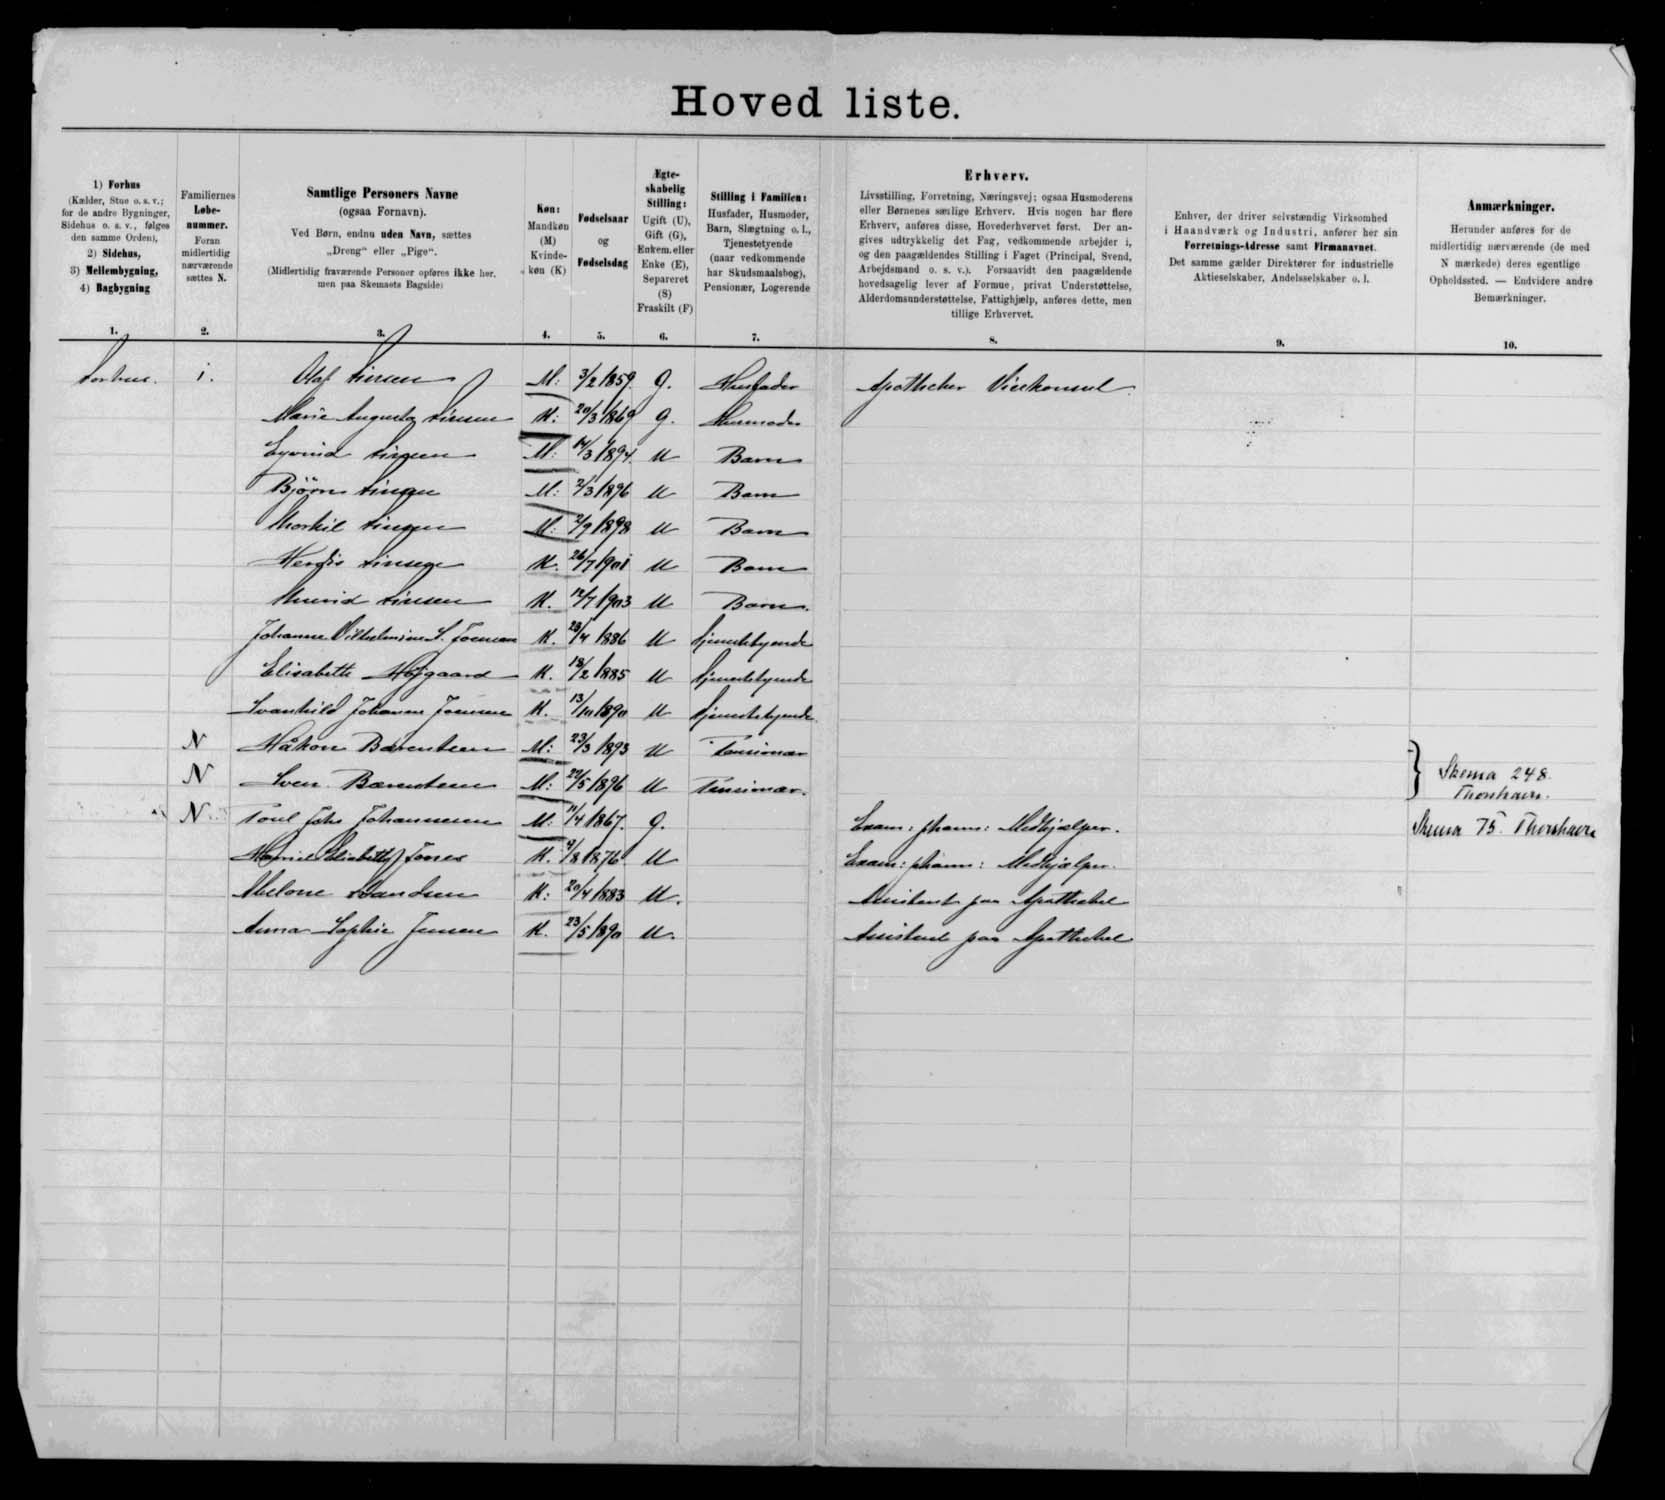 Hoved liste.
1) Forhus
(Kælder, Stue o. s. v.;
for de andre Bygninger,
Sidehus o. s. v., følges
den samme Orden),
2) Sidehus,
3) Mellembygning,
4) Bagbygning
Familiernes
Løbe-
nummer.
Foran
midlertidig
nærværende
sættes N.
Samtlige Personers Navne
(ogsaa Fornavn).
Ved Børn, endnu uden Navn, sættes
„Dreng“ eller „Pige“.
(Midlertidig fraværende Personer opføres ikke her.
men paa Skemaets Bagside)
Køn:
Mandkøn
(M)
Kvinde-
køn (K)
Fødselsaar
og
Fødselsdag
Ægte-
skabelig
Stilling:
Ugift (U),
Gift (G),
Enkem. eller
Enke (E),
Separeret
(S)
Fraskilt (F)
Stilling i Familien:
Husfader, Husmoder,
Barn, Slægtning o. l.,
Tjenestetyende
(naar vedkommende
har Skudsmaalsbog),
Pensionær, Logerende
Erhverv.
Livsstilling, Forretning, Næringsvej; ogsaa Husmoderens
eller Børnenes særlige Erhverv. Hvis nogen har flere
Erhverv, anføres disse, Hovederhvervet først. Der an-
gives udtrykkelig det Fag, vedkommende arbejder i,
og den paagældendes Stilling i Faget (Principal, Svend,
Arbejdsmand o. s. v.). Forsaavidt den paagældende
hovedsagelig lever af Formue, privat Understøttelse,
Alderdomsunderstøttelse, Fattighjælp, anføres dette, men
tillige Erhvervet.
Enhver, der driver selvstændig Virksomhed
i Haandværk og Industri, anfører her sin
Forretnings-Adresse samt Firmanavnet.
Det samme gælder Direktører for industrielle
Aktieselskaber, Andelsselskaber o. l.
Anmærkninger.
Herunder anføres for de
midlertidig nærværende (de med
N mærkede) deres egentlige
Opholdssted. — Endvidere andre
Bemærkninger.
1. 2. 3. 4. 5. 6. 7. 8. 9. 10.
Forhus. 1. Olaf Finsen M: 3/2 1859. G. Husfader Apotheker Vicekonsul.
Marie Augusta Finsen K: 20/3 1869 G. Husmoder
Eyvind Finsen M: 14/3 1894. U Barn
Björn Finsen M: 2/3 1896 U Barn
Thorkil Finsen M: 2/9 1898 U Barn
Herdis Finsen K. 26/7 1901 U Barn
Thurid Finsen K. 12/7 1903 U Barn.
Johanne Vilhelmine S. Joensen K. 23/4 1886 U Tjenestetyende
Elisabeth Højgaard K. 18/2 1885 U Tjenestetyende
Svanhild Johanne Joensen K. 13/10 1890 U Tjenestetyende
N Håkon Bærentsen M: 23/3 1893 U Pensionær
N Sven Bærentsen M: 29/5 1896 U Pensionær. } Skema 248. Thorshavn.
N Poul Johannesen M: 11/4 1867. G. Exam: pharm: Medhjælper. Skema 75. Thorshavn
Elisabeth Jones K. 9/8 1876 U Exam: pharm: Medhjælper.
K: 20/4 1883 U. Assistent paa Apotheket
Anna Sophie Jensen K. 23/5 1890 U. Assistent paa Apotheket